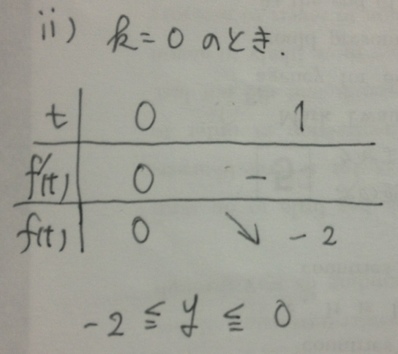 ii) k=0 のとき.
t 0 … 1
f'(t) 0 -
f(t) 0 ↘ -2
-2 ≦ y ≦ 0